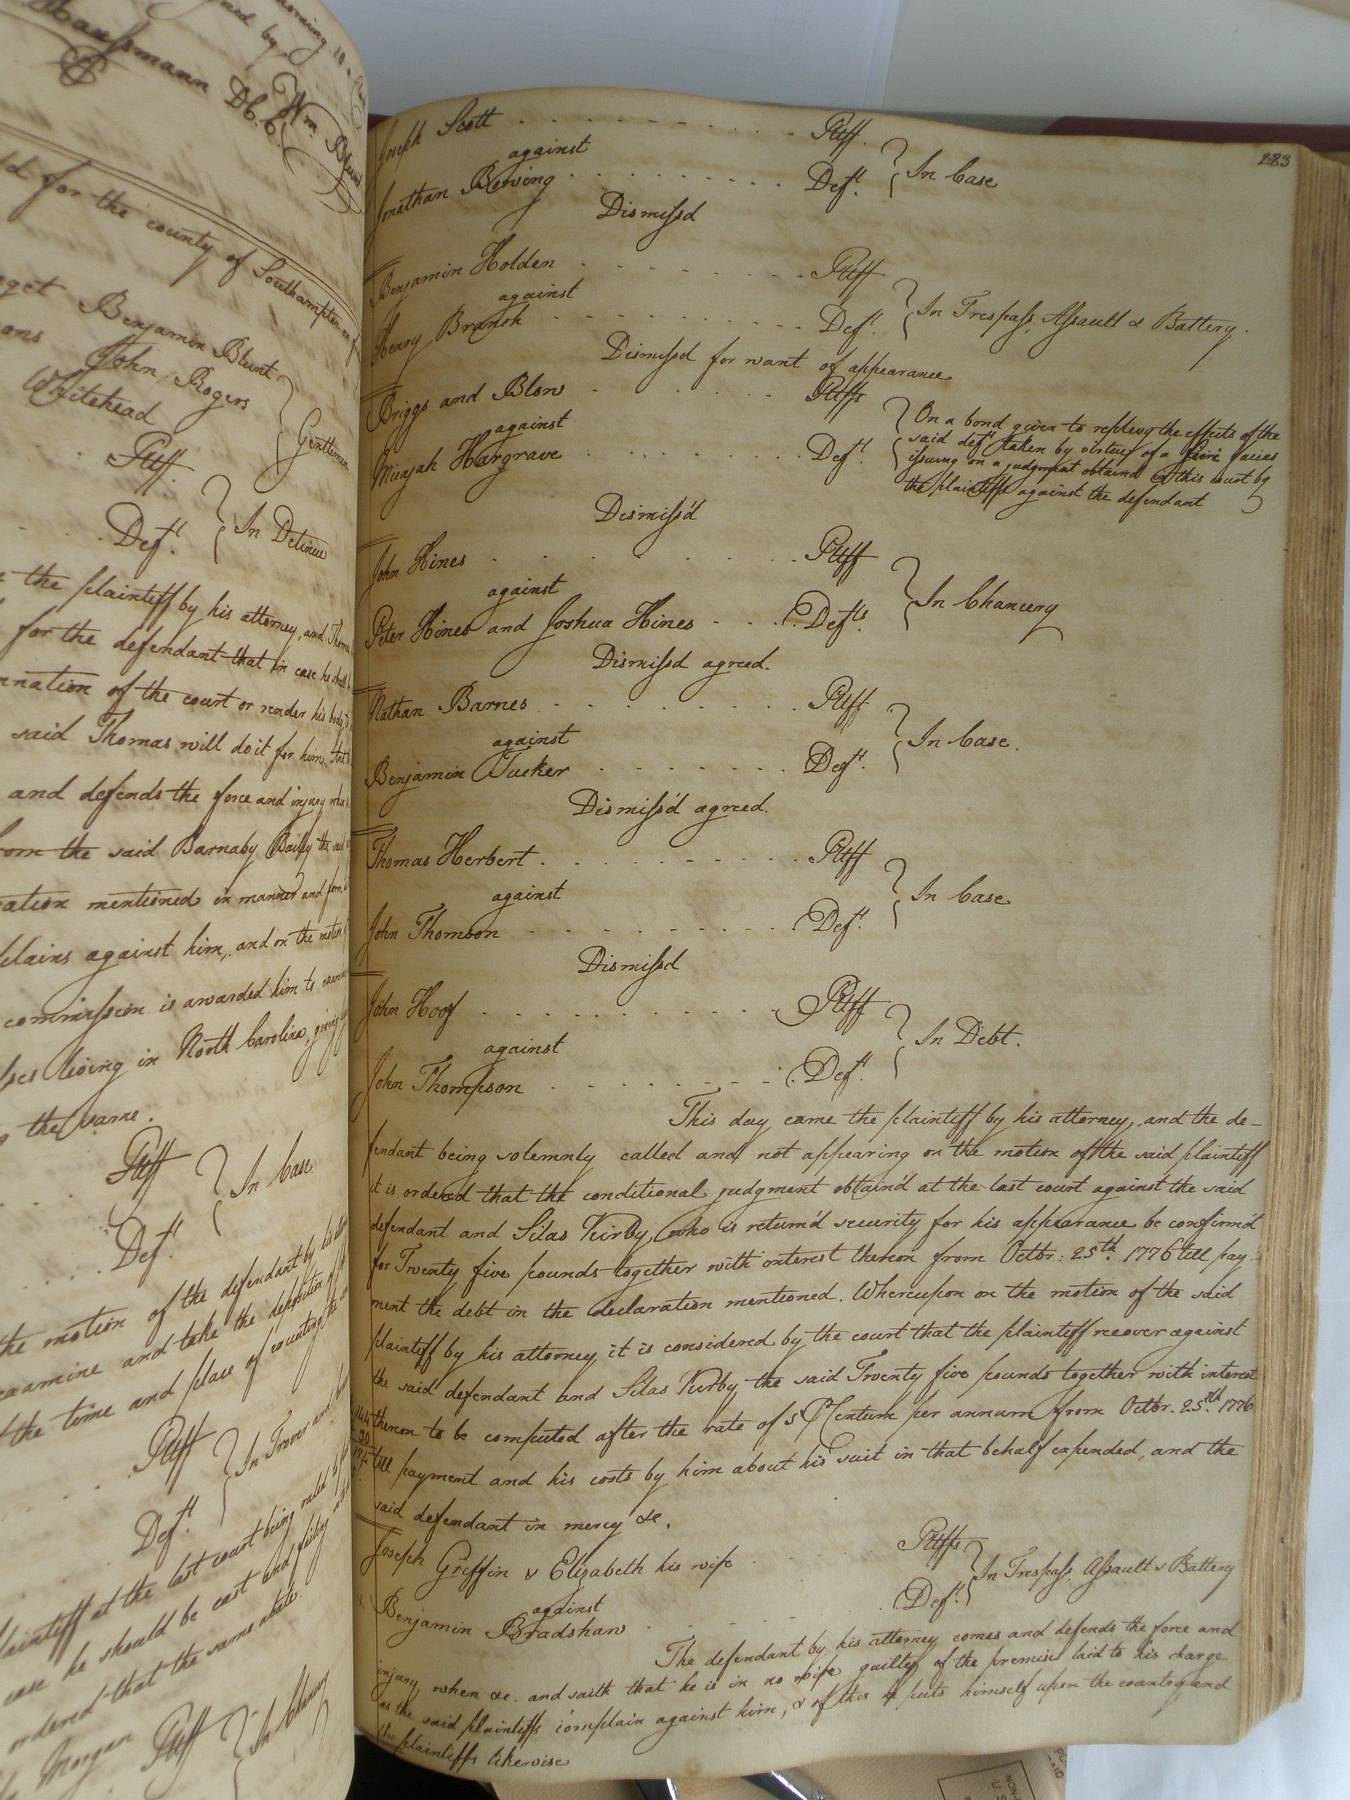 Haussmann Db. C.
Wm. Blunt
ld for the county of Southampton on
Benjamin Blunt
John Rogers
Whitehead
Gentlemen
Pltff.
Deft.
In Detinue
the plaintiff by his attorney, and Thomas
for the defendant that in case he shall
nation of the court or render his body
said Thomas will do it for him. And
and defends the force and injury when
from the said Barnaby Baily the said
ation mentioned in manner and form
plains against him, and on the motion
commission is awarded him to examine
living in North Carolina, giving
the same.
Pltff
In Case
Deft.
the motion of the defendant by his
examine and take the deposition of
the time and place of
Pltff
In Trover and
Deft.
plaintiff at the last court being
case he should be cast and
ordered that the same abate.
Morgan Pltff
In Chancery
283
Joseph Scott Pltff.
against
In Case
Jonathan Deft.
Dismissd
Benjamin Holden Pltff
against
In Trespass, Assault & Battery.
Henry Branch Deft.
Dismissd for want of appearance
Briggs and Blow Pltffs
against
On a bond given to replevy the effects of the
said deft. taken by virtue of a fieri facias
issuing on a judgment obtained in this court by
the plaintiffs against the defendant
Micajah Hargrave Deft.
Dismiss'd
John Hines Pltff
against
In Chancery
Peter Hines and Joshua Hines Defts.
Dismissd agreed.
Nathan Barnes Pltff
against
In Case.
Benjamin Tucker Deft.
Dismiss'd agreed.
Thomas Herbert Pltff
against
In Case
John Thomson Deft.
Dismissd
John Hoof Pltff
against
In Debt.
John Thompson Deft.
This day came the plaintiff by his attorney, and the de-
fendant being solemnly called and not appearing on the motion of the said plaintiff
it is ordered that the conditional judgment obtain'd at the last court against the said
defendant and Silas Kirby who is return'd security for his appearance be confirm'd
for Twenty five pounds together with interest thereon from Octbr. 25th. 1776 till pay-
ment the debt in the declaration mentioned. Whereupon on the motion of the said
plaintiff by his attorney, it is considered by the court that the plaintiff recover against
the said defendant and Silas Kirby the said Twenty five pounds together with interest
thereon to be computed after the rate of 5 Centum per annum from Octbr. 25th. 1776
till payment and his costs by him about his suit in that behalf expended, and the
said defendant in mercy &c.
Joseph Griffin & Elizabeth his wife Pltffs
against
In Trespass Assault & Battery
Benjamin Bradshaw Deft.
The defendant by his attorney comes and defends the force and
injury when &c. and saith that he is in no wise guilty of the premises laid to his charge
as the said plaintiffs complain against him, & of this puts himself upon the country and
the plaintiffs likewise